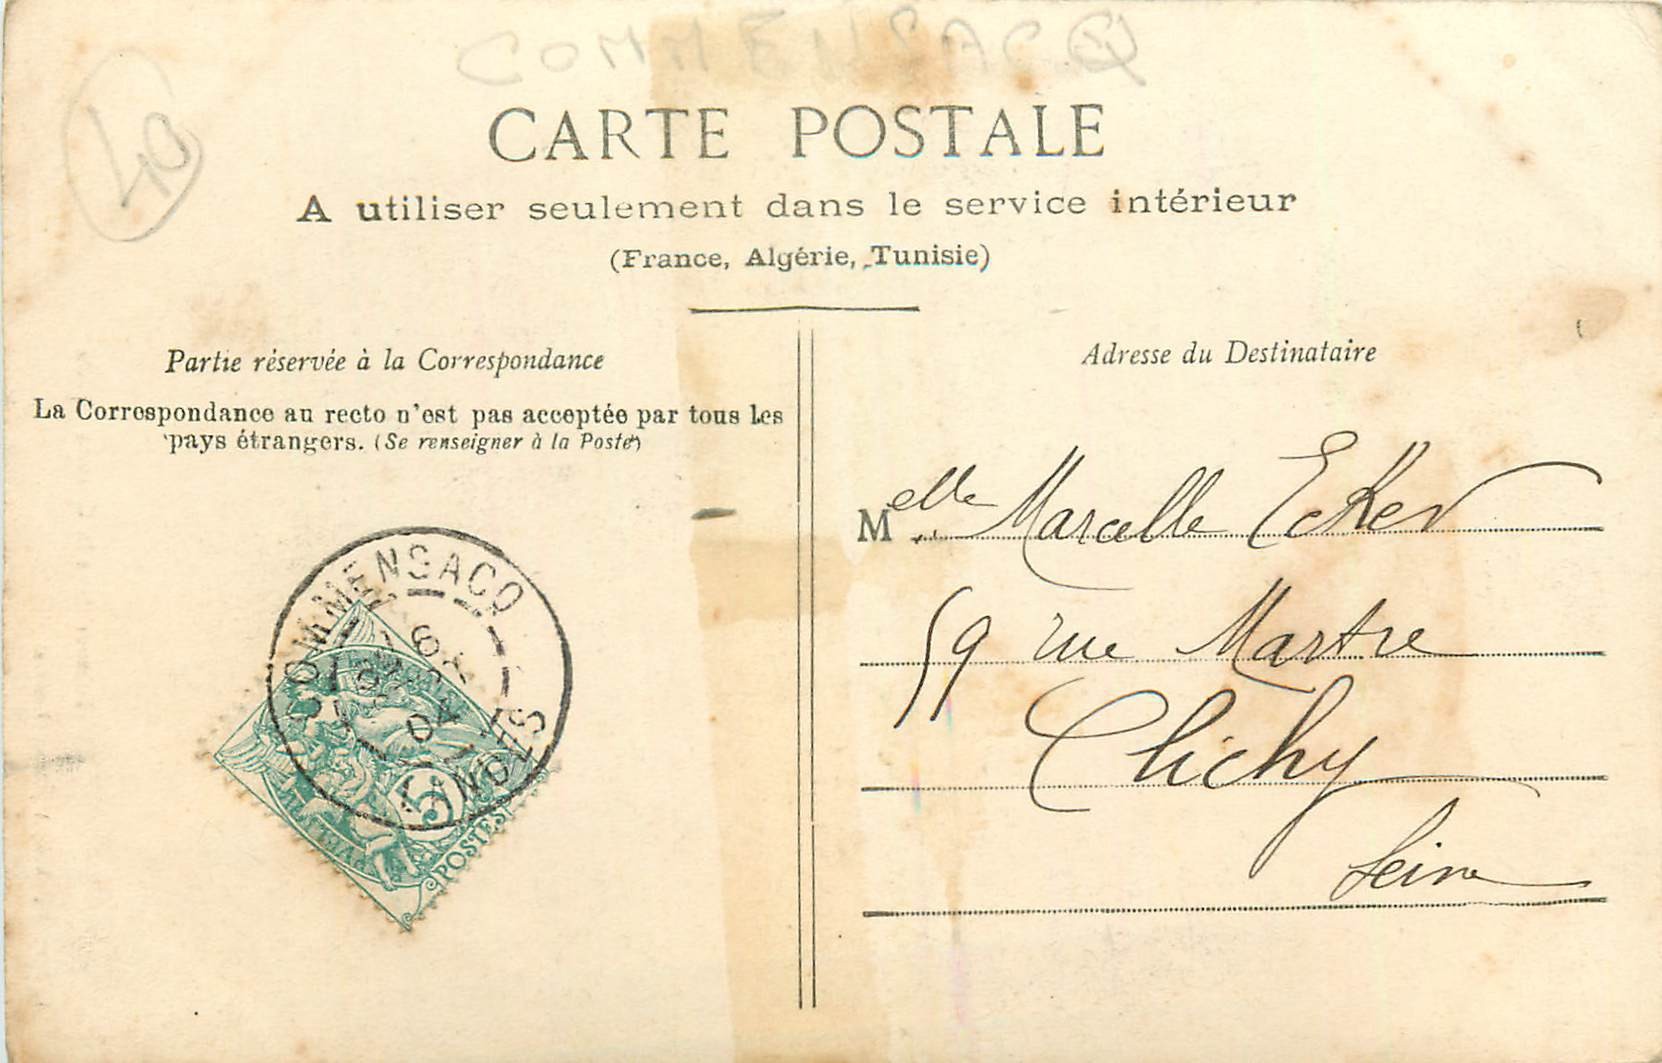 COMMENSACQ
40
CARTE POSTALE
A utiliser seulement dans le service intérieur
(France, Algérie, Tunisie)
Partie réservée à la Correspondance
La Correspondance au recto n'est pas acceptée par tous les
pays étrangers. (Se renseigner à la Poste)
Adresse du Destinataire
Melle Marcelle Ecker
59 rue Martre
Clichy
Seine
COMMENSACQ
6
04
LANDES
5
POSTES